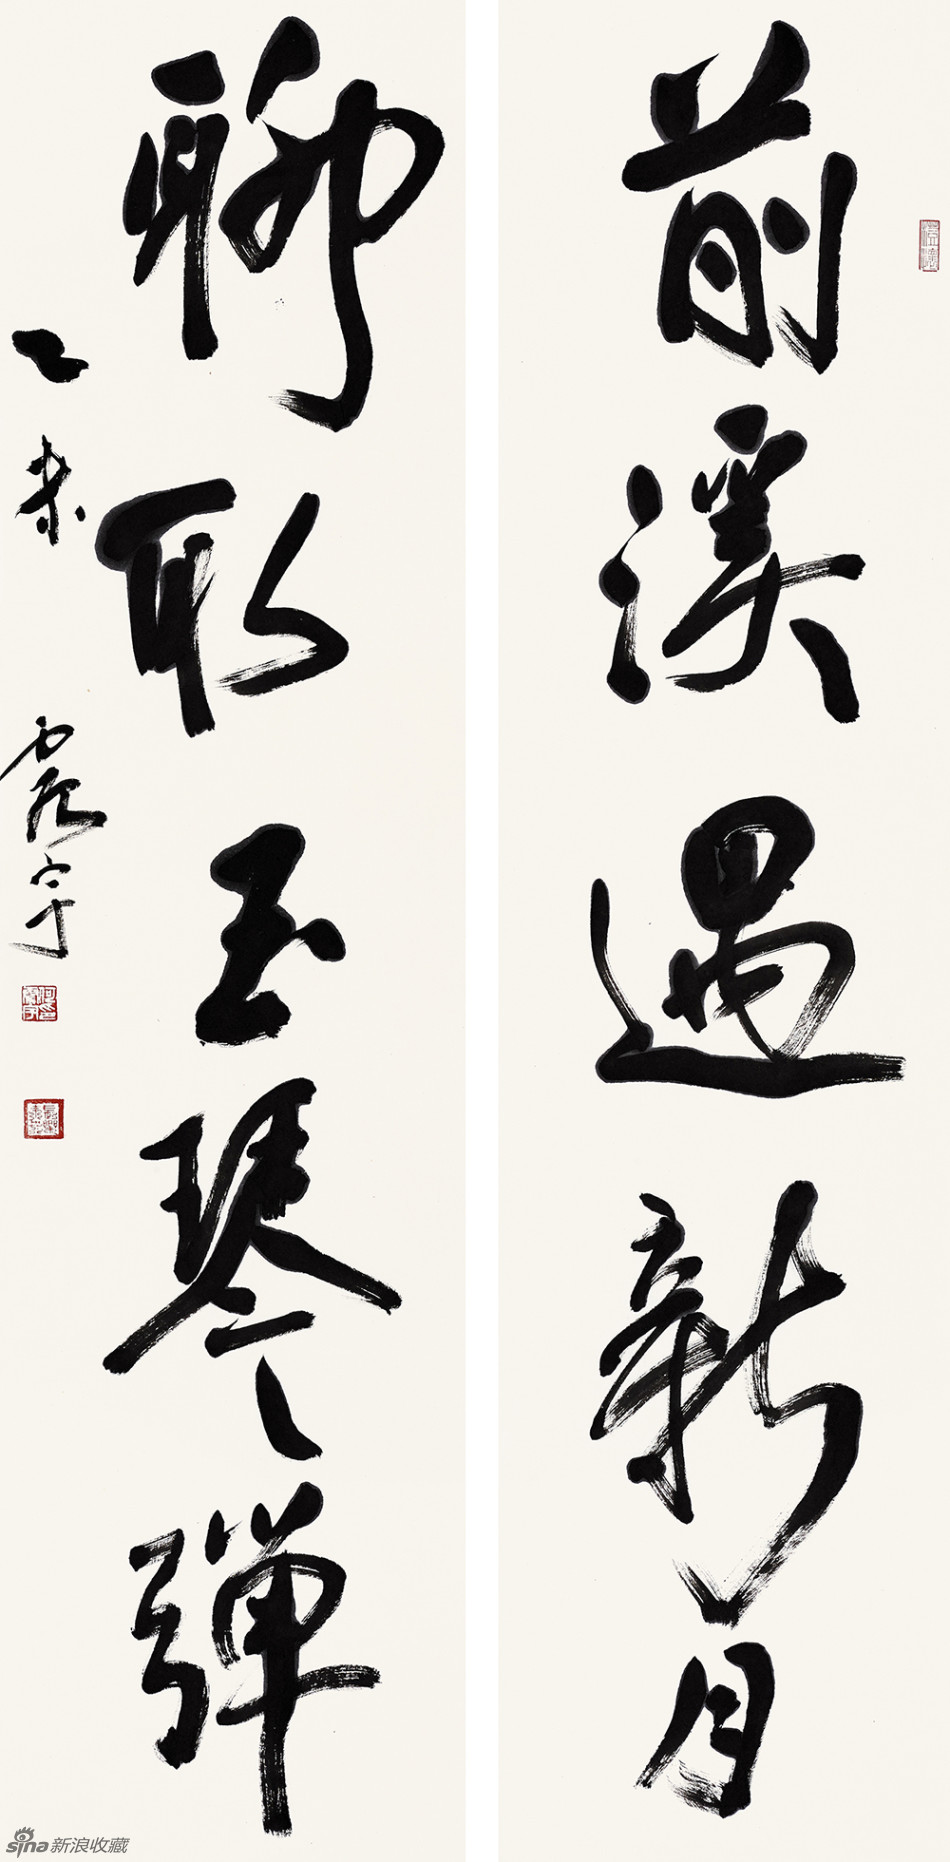 前溪遇新月
聊取玉琴弹
乙未
震宇
sina新浪收藏